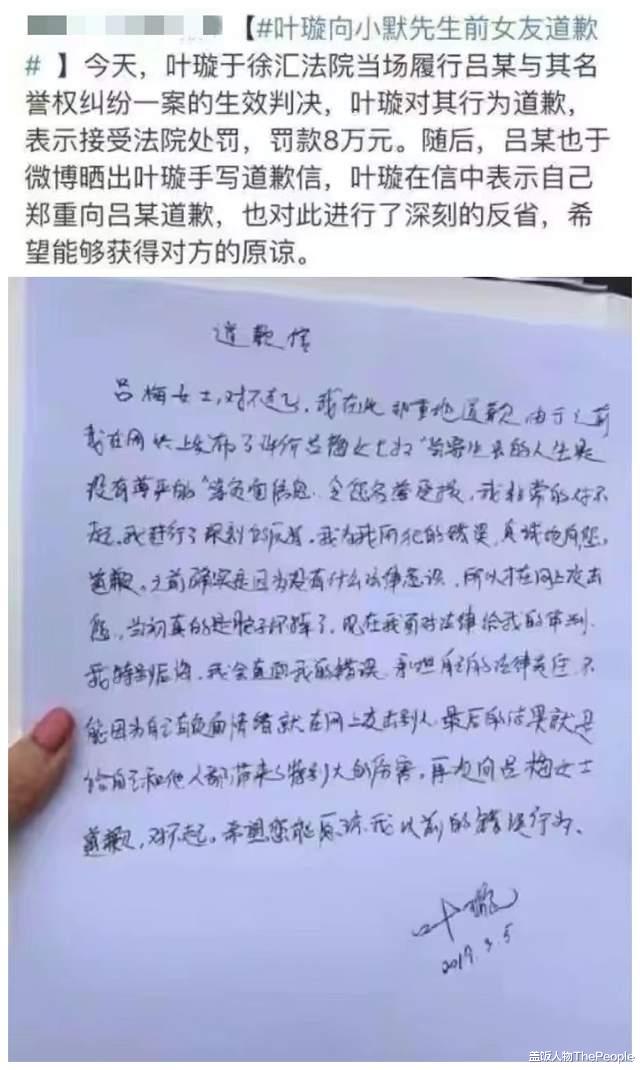 【#叶璇向小默先生前女友道歉
# 】今天，叶璇于徐汇法院当场履行吕某与其名
誉权纠纷一案的生效判决，叶璇对其行为道歉，
表示接受法院处罚，罚款8万元。随后，吕某也于
微博晒出叶璇手写道歉信，叶璇在信中表示自己
郑重向吕某道歉，也对此进行了深刻的反省，希
望能够获得对方的原谅。
道歉信
吕梅女士，对不起，我在此郑重地道歉 由于之前
我在网络上发布了评价吕梅女士的"寄生虫的人生是
没有尊严的"等负面信息，令您名誉受损，我非常的对不
起，我进行了深刻的反省，我为我所犯的错误，真诚地向您，
道歉。之前确实是因为没有什么法律意识，所以才在网上攻击
您，当初真的是脑子坏掉了，现在我面对法律给我的审判，
我特别后悔，我会直面我的错误，承担自己的法律责任 不
能因为自己有负面情绪就在网上攻击别人 最后的结果就是
给自己和他人都带来了特别大的伤害，再次向吕梅女士
道歉，对不起，希望您能原谅我以前的错误行为。
叶璇
2019.3.5
盖饭人物ThePeople